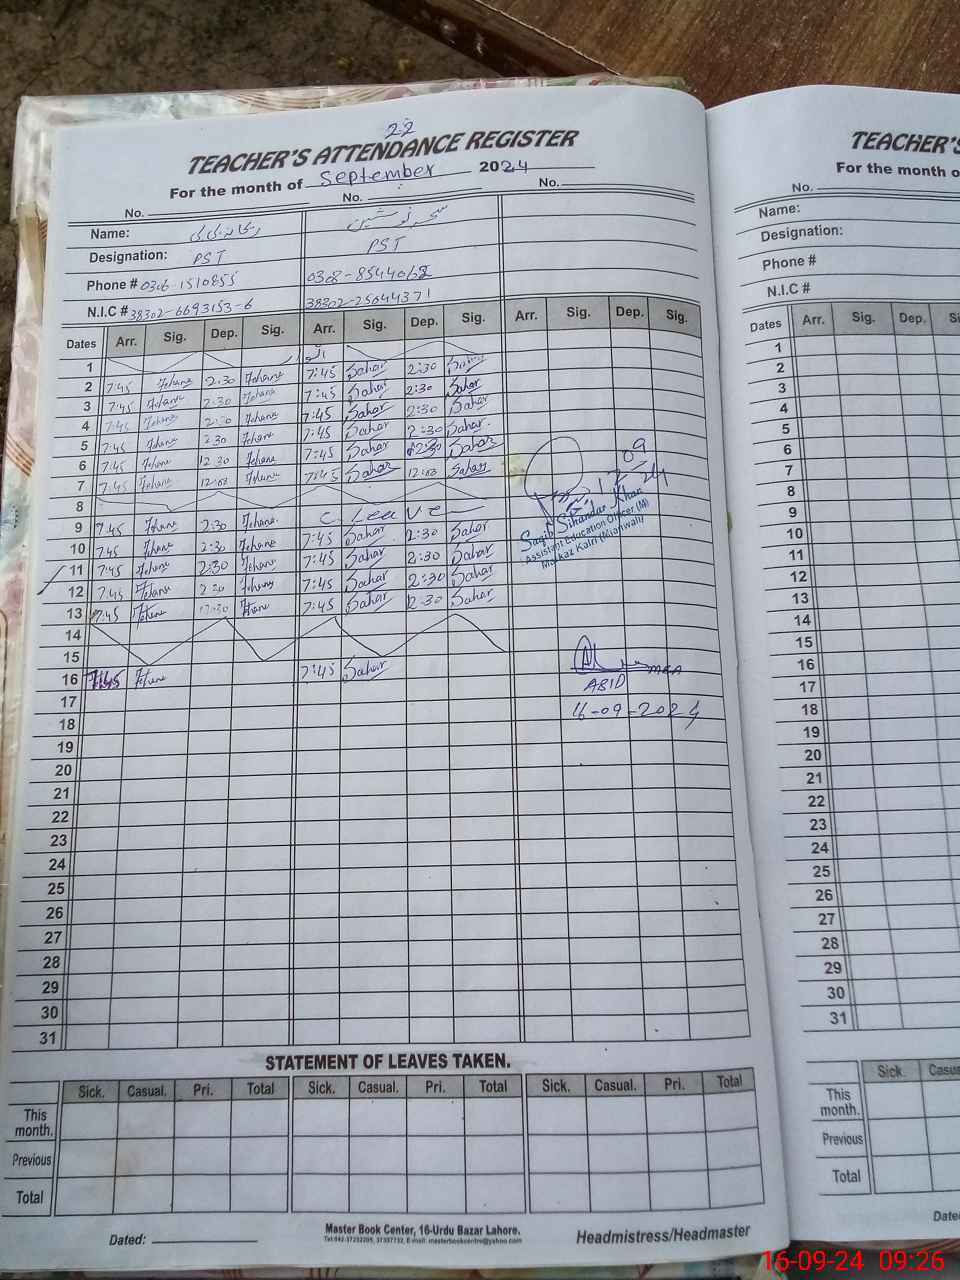 22
TEACHER'S ATTENDANCE REGISTER
For the month of September 2024
No. No. No.
Name: سحر نوشین
Designation: PST PST
Phone # 0306-1510855 0308-8544068
N.I.C # 38302-6693153-6 38302-25644371
Dates Arr. Sig. Dep. Sig. Arr. Sig. Dep. Sig. Arr. Sig. Dep. Sig.
1 اتوار
2 7:45 2:30 7:45 Sahar 2:30 Sahar
3 7:45 2:30 7:45 Sahar 2:30 Sahar
4 7:45 2:30 7:45 Sahar 2:30 Sahar
5 7:45 2:30 7:45 Sahar 2:30 Sahar
6 7:45 12:30 7:45 Sahar 12:30 Sahar
7 7:45 12:00 7:45 Sahar 12:00 Sahar
8
9 7:45 2:30 C. Leave
10 7:45 2:30 7:45 Sahar 2:30 Sahar
11 7:45 2:30 7:45 Sahar 2:30 Sahar
12 7:45 2:30 7:45 Sahar 2:30 Sahar
13 7:45 12:30 7:45 Sahar 12:30 Sahar
14
15
16 7:45 7:45 Sahar
17
18
19
20
21
22
23
24
25
26
27
28
29
30
31
Saqib Sikandar Khan
Assistant Education Officer (M)
Markaz Kalri (Mianwali)
MEA
ABID
16-09-2024
STATEMENT OF LEAVES TAKEN.
Sick. Casual. Pri. Total Sick. Casual. Pri. Total Sick. Casual. Pri. Total
This month.
Previous
Total
Dated:
Master Book Center, 16-Urdu Bazar Lahore.
Headmistress/Headmaster
TEACHER'S
For the month o
No.
Name:
Designation:
Phone #
N.I.C #
Dates Arr. Sig. Dep. Si
1
2
3
4
5
6
7
8
9
10
11
12
13
14
15
16
17
18
19
20
21
22
23
24
25
26
27
28
29
30
31
Sick. Casua
This month.
Previous
Total
Date
16-09-24 09:26